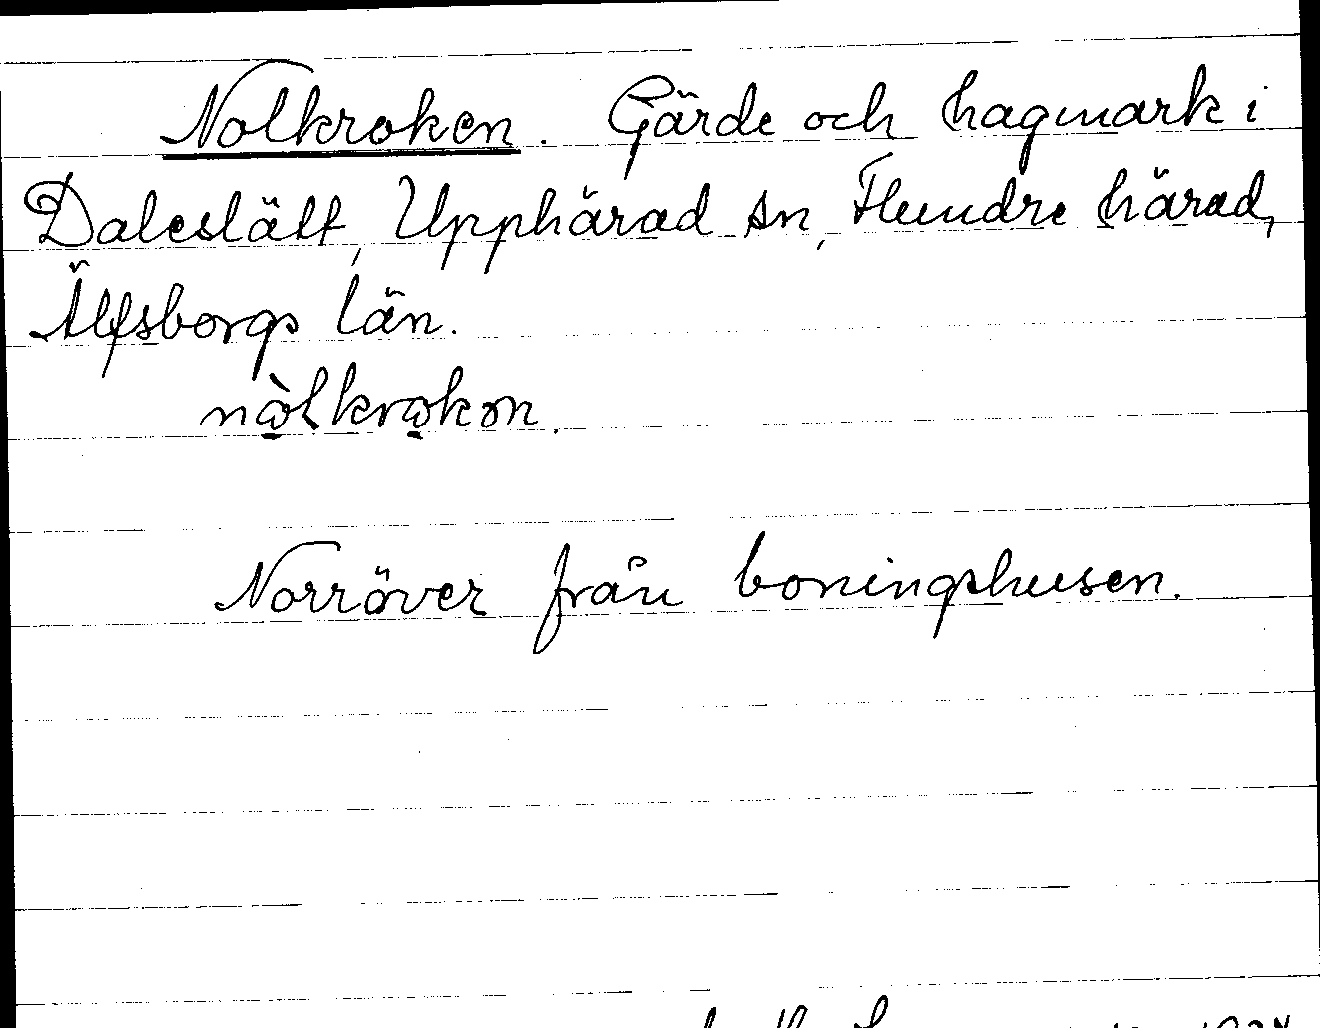 Nolkroken. Gärde och hagmark i
Daleslätt, Upphärad sn, Flundre härad,
Älfsborgs län.
nòlkrokɷn.
Norröver från boningshusen.